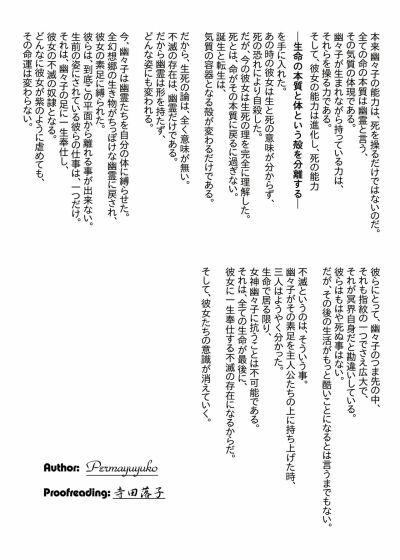 本来幽々子の能力は、死を操るだけではないのだ。
全ての命の本質は幽霊と言う、
その気質の体現である。
幽々子が生まれながら持っている力は、
それらを操る力である。
そして、彼女の能力は進化し、死の能力
―生命の本質と体という殻を分離する―
を手に入れた。
あの時の彼女は生と死の意味が分からず、
死の恐れにより自殺した。
だが、今の彼女は生死の理を完全に理解した。
死とは、命がその本質に戻るに過ぎない。
誕生と転生は、
気質の容器となる殻が変わるだけである。
だから、生死の論は、全く意味が無い。
不滅の存在は、幽霊だけである。
だから幽霊は形を持たず、
どんな姿にも変われる。
今、幽々子は幽霊たちを自分の体に縛らせた。
全幻想郷の生き物がちっぽけな幽霊に戻され、
彼女の素足に縛られた。
彼らは、到底この平面から離れる事が出来ない。
生前の姿にされている彼らの仕事は、一つだけ。
それは、幽々子の足に一生奉仕し、
彼女の不滅の奴隷となる。
どんなに彼女が紫のように虐めても、
その命運は変わらない。
彼らにとって、幽々子のつま先の中、
それも指紋の一つでさえ広大で、
それが冥界自身だと勘違いしている。
彼らはもはや死ぬ事はない。
だが、その後の生活がもっと酷いことになるとは言うまでもない。
不滅というのは、そういう事。
幽々子がその素足を主人公たちの上に持ち上げた時、
三人はようやく分かった。
生命で居る限り、
女神幽々子に抗うことは不可能である。
それは、全ての生命が最後に、
彼女に一生奉仕する不滅の存在になるからだ。
そして、彼女たちの意識が消えていく。
Author: Permayuyuko
Proofreading: 寺田落子